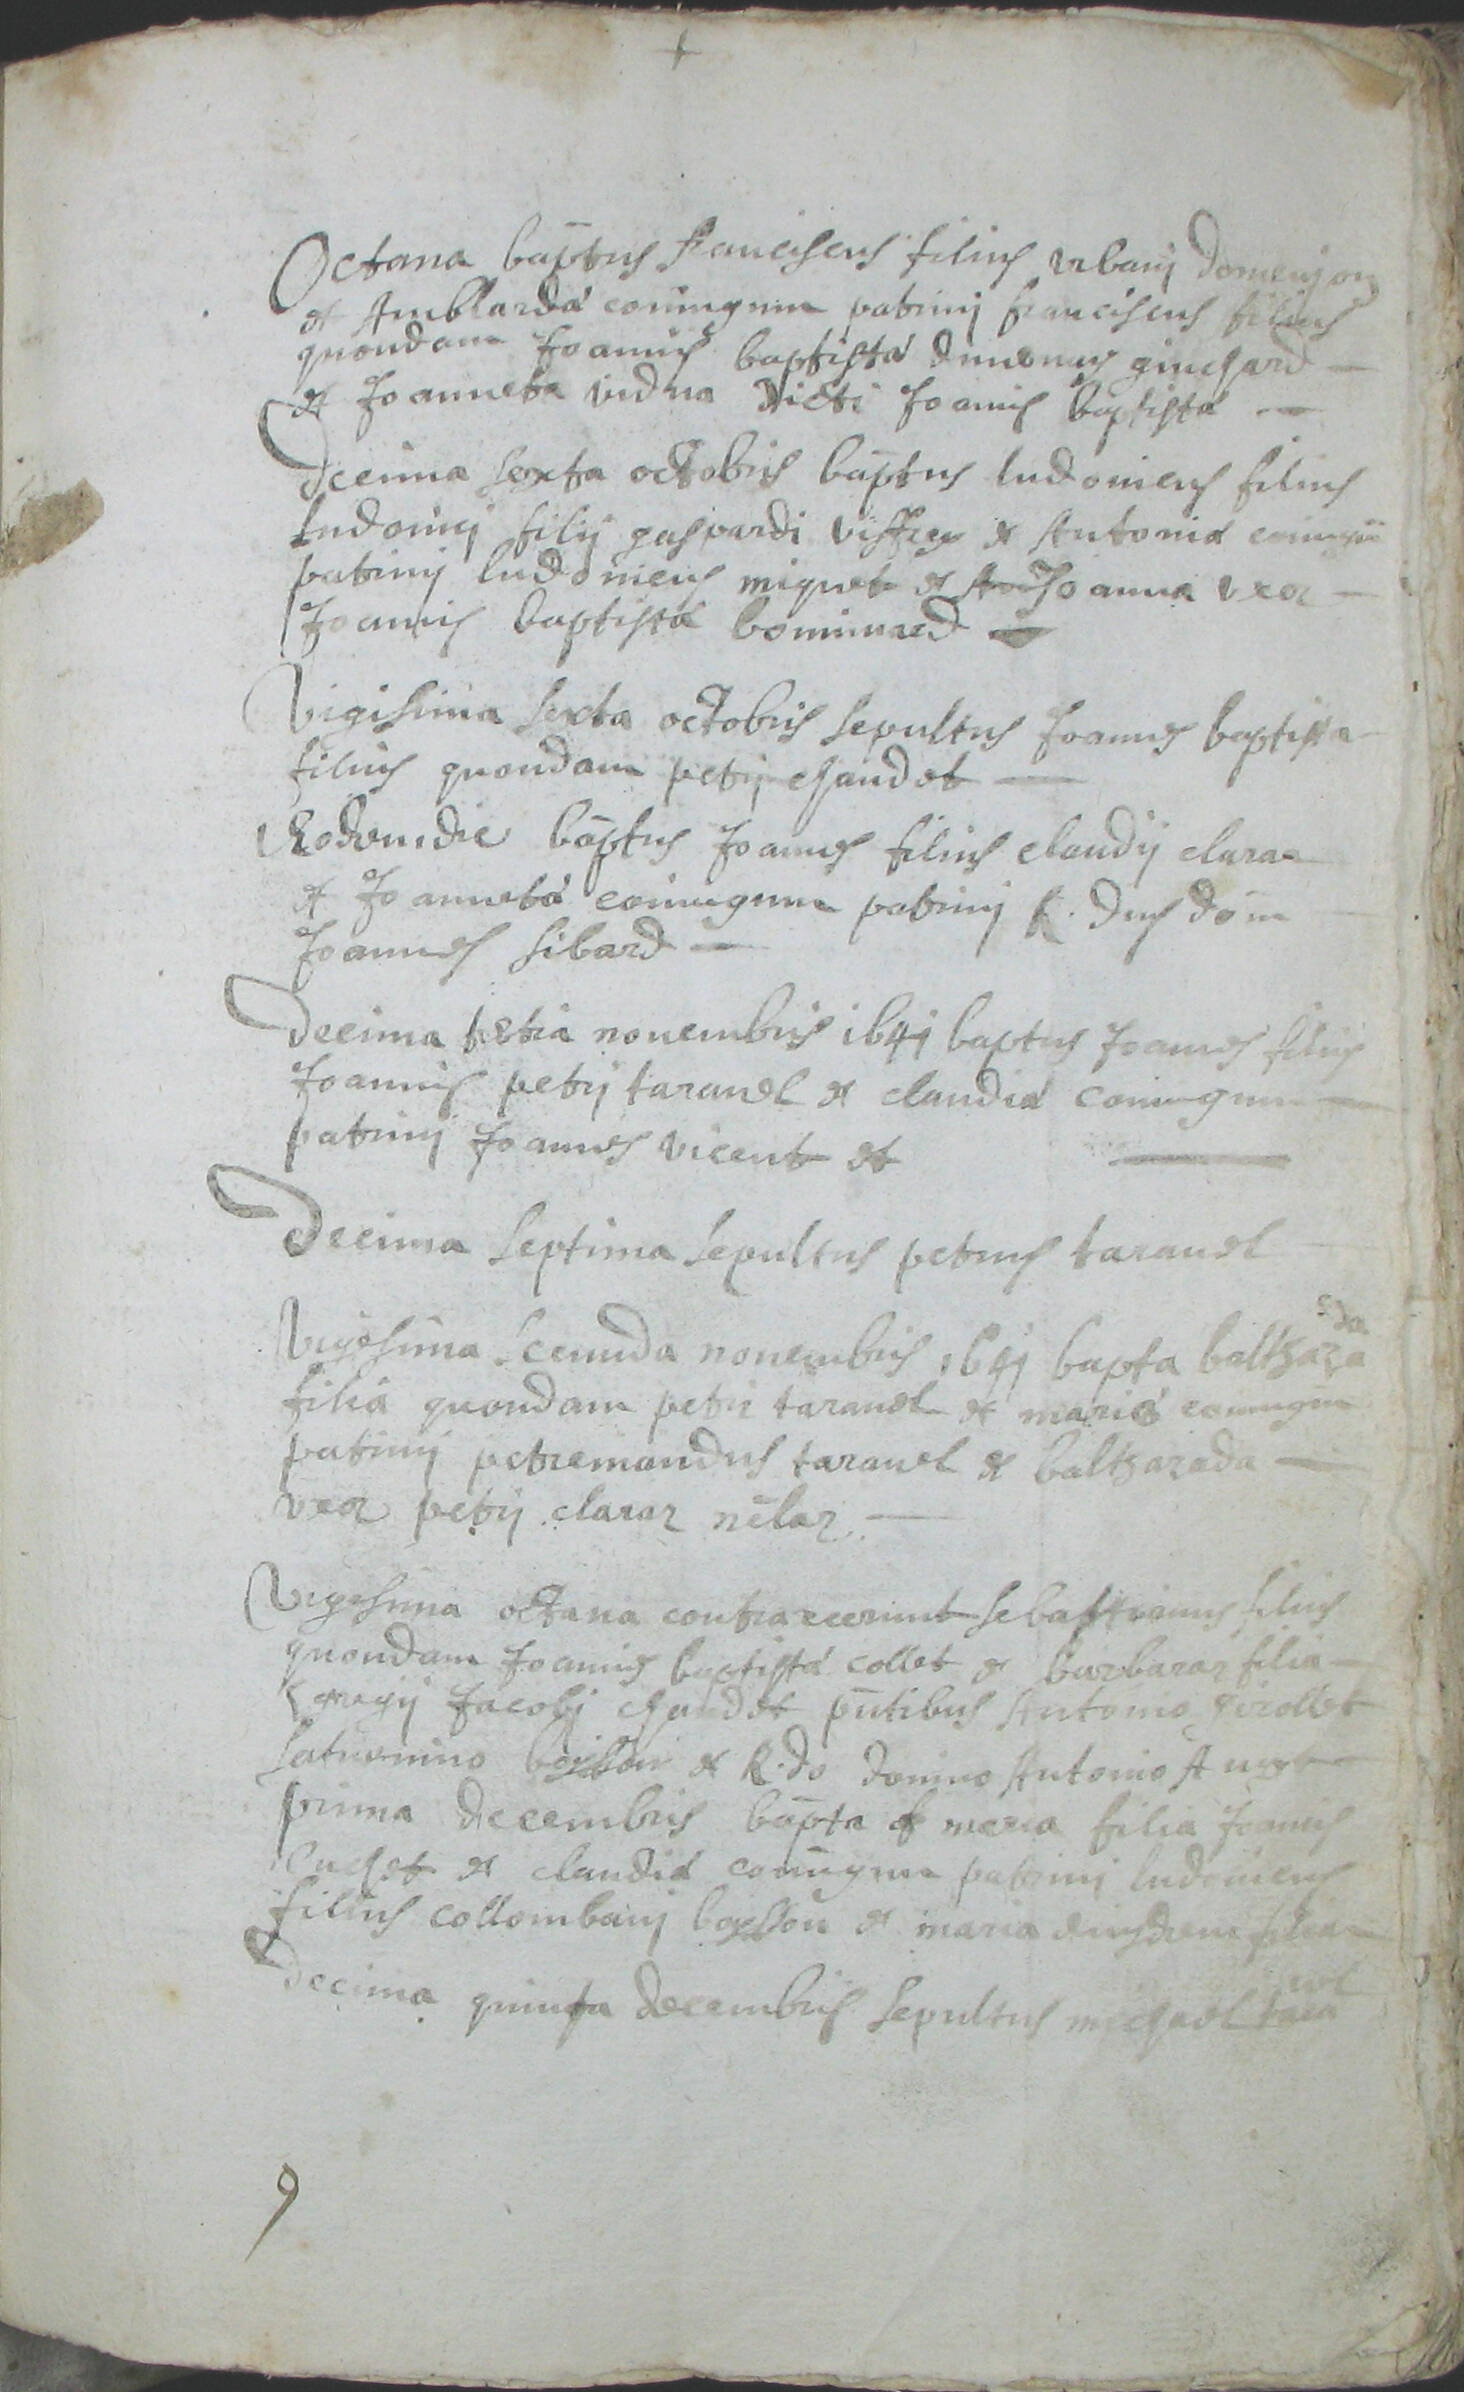 Octaua bãptus franciscus filius vrbanj domenjon
et Amblardæ coniugum patrinj franciscus filius
quondam Joannis baptistæ guichard
et Joanneta vidua dicti Joanis baptistæ
Decima sexta octobris bãptus ludouicus filius
ludouicj filij gaspardi et Antoniæ coniugũ
patrinj ludouicus miquet et Joanna vxor
Joannis baptistæ
Vigisima sexta octobris sepultus Joannes baptista
filius quondam petrj chaudet
Eodemdie bãptus Joannes filius claudij claraz
et Joannetæ coniugum patrinj R. dus dom
Joannes sibard
Decima tertia nouembris 1641 baptus Joannes filius
Joannis petrj tarauel et claudiæ coniugum
patrinj Joannes vicent et
Decima septima sepultus petrus tarauel
Vigesima secunda nouembris 1641 bapta balthaza
rda
filia quondam petri tarauel et mariæ coniugum
patrinj petremandus tarauel et balthazarda
vxor petrj claraz
Vigesima octaua contraxerunt sebastianus filius
quondam Joannis baptistæ collet et barbara filia
Jacobj chaudet pñtibus Antonio
saturnino boisson et R.do domino Antonio
prima decembris bãpta maria filia Joannis
et claudiæ coniugum patrinj ludouicus
filius collombanj boisson et maria eiusdem filia
Decima quinta decembris sepultus michael tara
uel
9